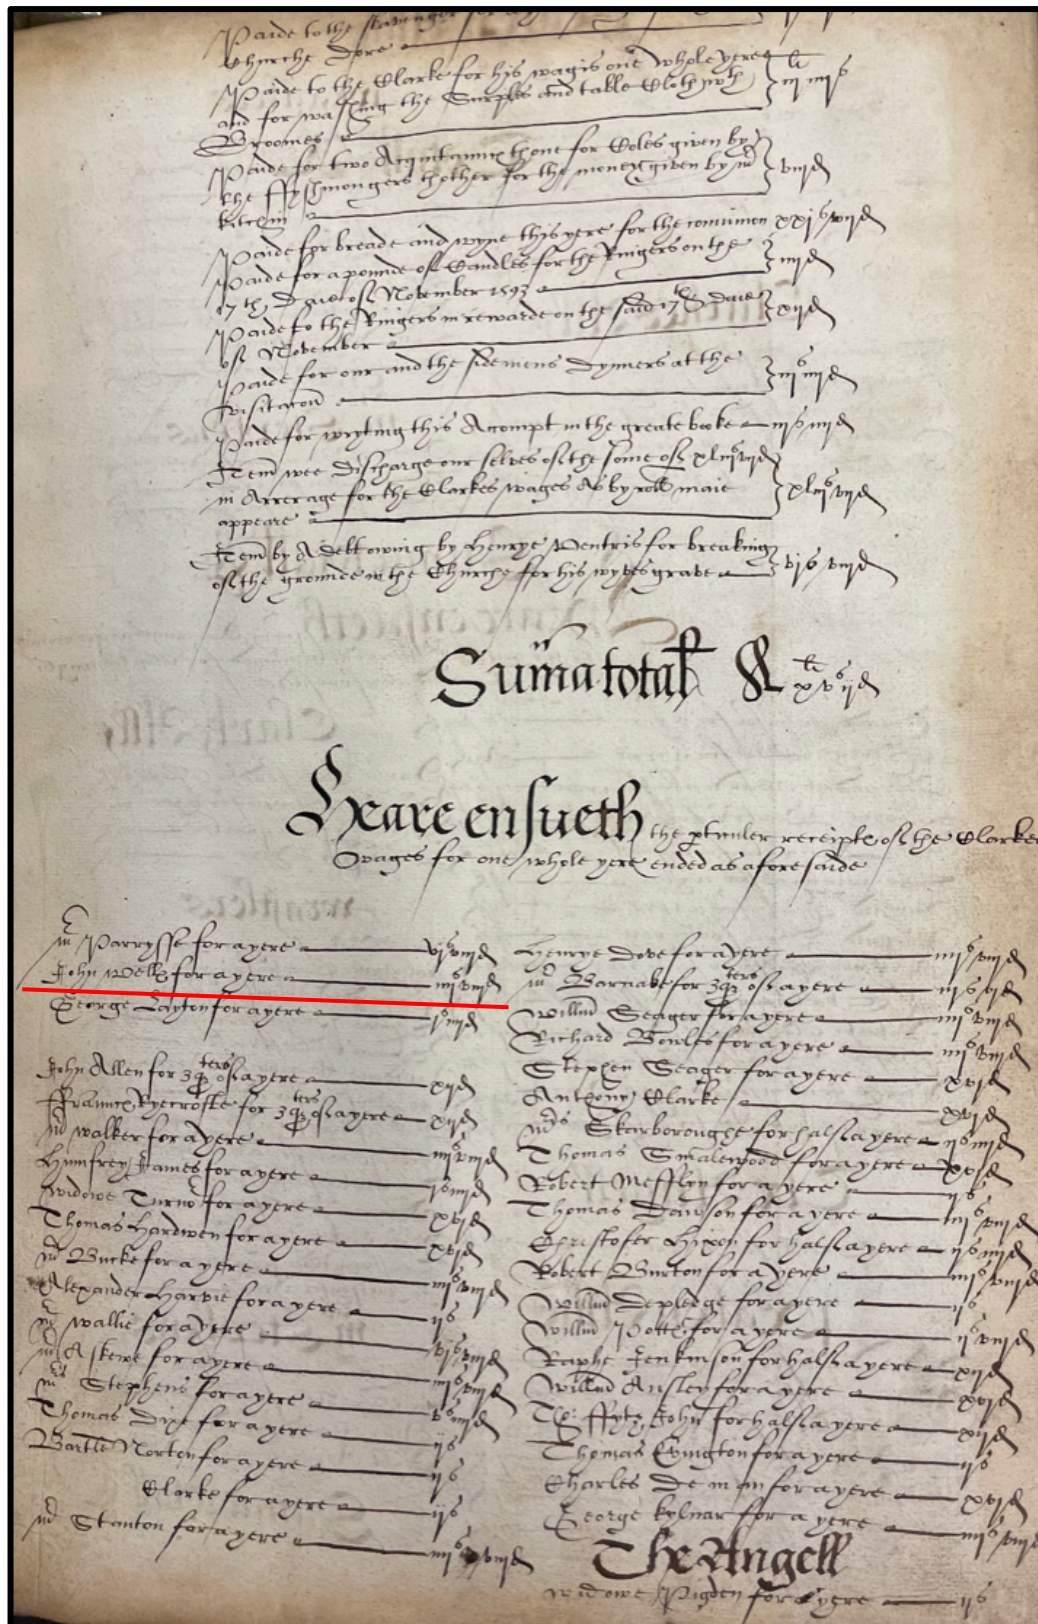 Paide to the skavenger for
Churche dore
Paide to the Clarke for his wagis one whole yere
and for wasshing the Surples and table Cloth wth
Broomes
iiij li iiij s
Paide for two Acquitannc thone for Coles given by
the ffysshmongers thother for the money given by mr
kitchin
viij d
Paide for breade and wyne this yere for the comunion xxj s viij d
Paide for a pounde of Candles for the Ringers on the
17 th Daie of November 1593
iiij d
Paide to the Ringers in rewarde on the said 17 th Daie
of November
xij d
Paide for our and the sidemens Dynners at the
visitacon
iij s iiij d
Paide for wryting this Accompt in the greate booke iij s iiij d
Itm wee discharge our selves of the some of xliij s viij d
in Arrerage for the Clarkes wages As by roll maie
appeare
xliij s viij d
Itm by A debt owing by Henrye Ventris for breaking
of the grounde in the Churche for his wyves grave
vj s viij d
Suma total
li xv s ij d
Heare ensueth the pticuler receipte of the Clarkes
wages for one whole yere ended as aforesaide
mr Parrysse for a yere vj s viij d
John Wells for a yere iiij s viij d
George Layton for a yere j s iiij d
John Allen for 3 qrters of a yere xij d
Frauncis Ryecrofte for 3 qrters of a yere xij d
mr walker for a yere iiij s viij d
Humfrey James for a yere j s iiij d
widowe Turnor for a yere xvj d
Thomas Hardwen for a yere xvj d
mr Bucke for a yere iiij s viij d
Alexander Harvie for a yere ij s
mr wallie for a yere vj s viij d
mr Askewe for a yere iiij s viij d
mris Stephens for a yere v s iiij d
Thomas Dixe for a yere ij s
Bartle Norton for a yere ij s
Clarke for a yere ij s
mr Stanton for a yere iiij s viij d
Henrye Dove for a yere iiij s viij d
mr Barnabe for 3 qrters of a yere iij s vj d
Willm Seager for a yere iiij s viij d
Richard Bowles for a yere iiij s viij d
Stephen Seager for a yere xvj d
Anthony Clarke xvj d
mris Skarboroughe for half a yere ij s iiij d
Thomas Smalewood for a yere xvj d
Robert Mefflyn for a yere ij s
Thomas Dawson for a yere iiij s viij d
Christofer Hixon for half a yere ij s iiij d
Robert Burton for a yere iiij s viij d
Willm Depledge for a yere ij s
Willm Potts for a yere ij s viij d
Raphe Jenkinson for half a yere xij d
Willm Ansley for a yere xvj d
Tho: ffytz John for half a yere xij d
Thomas Evington for a yere ij s
Charles De man for a yere xvj d
George kylnar ffor a yere iiij s viij d
The Angell
widowe Pigden for a yere ij s